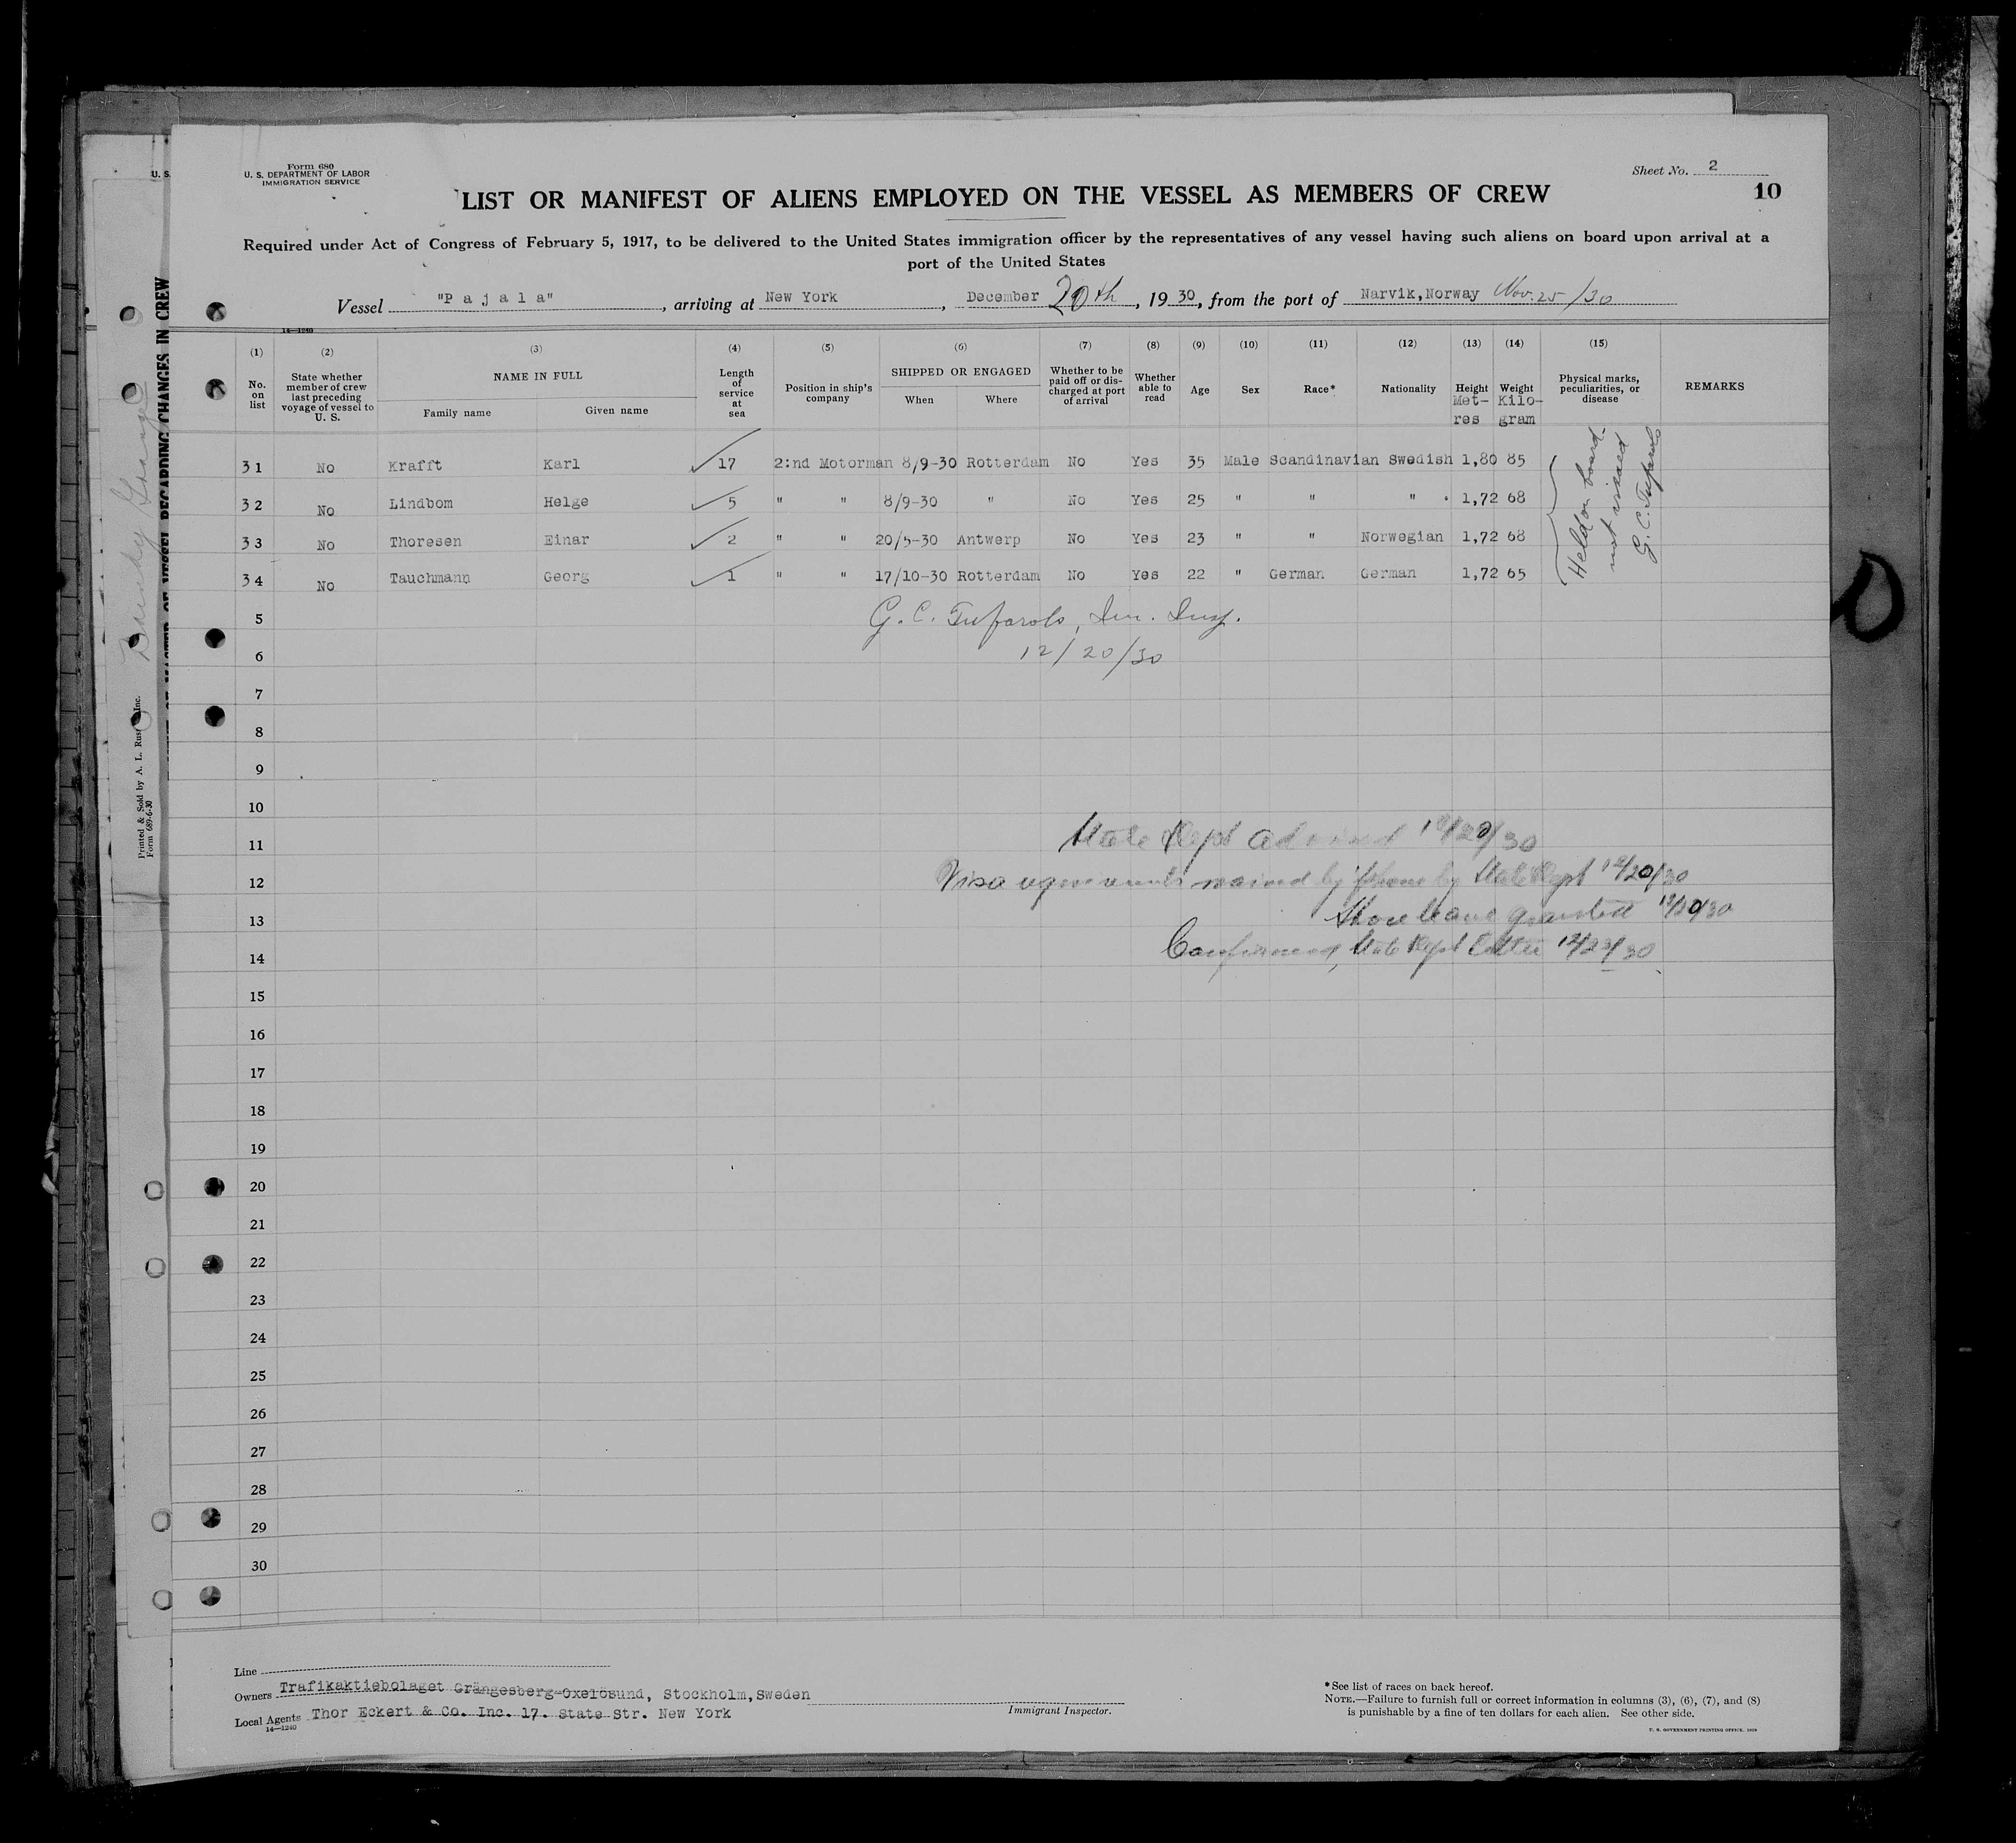 Form 680
U. S. DEPARTMENT OF LABOR
IMMIGRATION SERVICE
Sheet No. 2
10
LIST OR MANIFEST OF ALIENS EMPLOYED ON THE VESSEL AS MEMBERS OF CREW
Required under Act of Congress of February 5, 1917, to be delivered to the United States immigration officer by the representatives of any vessel having such aliens on board upon arrival at a
port of the United States
Vessel "P a j a l a", arriving at New York, December 20th, 1930, from the port of Narvik,Norway Nov. 25/30
14—1240
(1) (2) (3) (4) (5) (6) (7) (8) (9) (10) (11) (12) (13) (14) (15)
No. on list
State whether member of crew last preceding voyage of vessel to U. S.
NAME IN FULL
Family name Given name
Length of service at sea
Position in ship's company
SHIPPED OR ENGAGED
When Where
Whether to be paid off or discharged at port of arrival
Whether able to read
Age
Sex
Race*
Nationality
Height Met-res
Weight Kilo-gram
Physical marks, peculiarities, or disease
REMARKS
31 No Krafft Karl 17 2:nd Motorman 8/9-30 Rotterdam No Yes 35 Male Scandinavian Swedish 1,80 85
32 No Lindbom Helge 5 " " 8/9-30 " No Yes 25 " " " 1,72 68
33 No Thoresen Einar 2 " " 20/5-30 Antwerp No Yes 23 " " Norwegian 1,72 68
34 No Tauchmann Georg 1 " " 17/10-30 Rotterdam No Yes 22 " German German 1,72 65
Held on board-
not visaed
G. C.
5 G. C.
6 12/20/30
7
8
9
10
11 State Dept advised 12/20/30
12 Visa requirements waived by phone by State Dept 12/20/30
13 Shore leave granted 12/20/30
14 Confirmed, State Dept letter 12/23/30
15
16
17
18
19
20
21
22
23
24
25
26
27
28
29
30
Line
Owners Trafikaktiebolaget Grängesberg-Oxelösund, Stockholm,Sweden
Local Agents Thor Eckert & Co. Inc. 17. State Str. New York
14—1240
Immigrant Inspector.
*See list of races on back hereof.
NOTE.—Failure to furnish full or correct information in columns (3), (6), (7), and (8)
is punishable by a fine of ten dollars for each alien. See other side.
U. S. GOVERNMENT PRINTING OFFICE
Printed & Sold by A. L. Inc.
Form 689-6-30
REGARDING CHANGES IN CREW